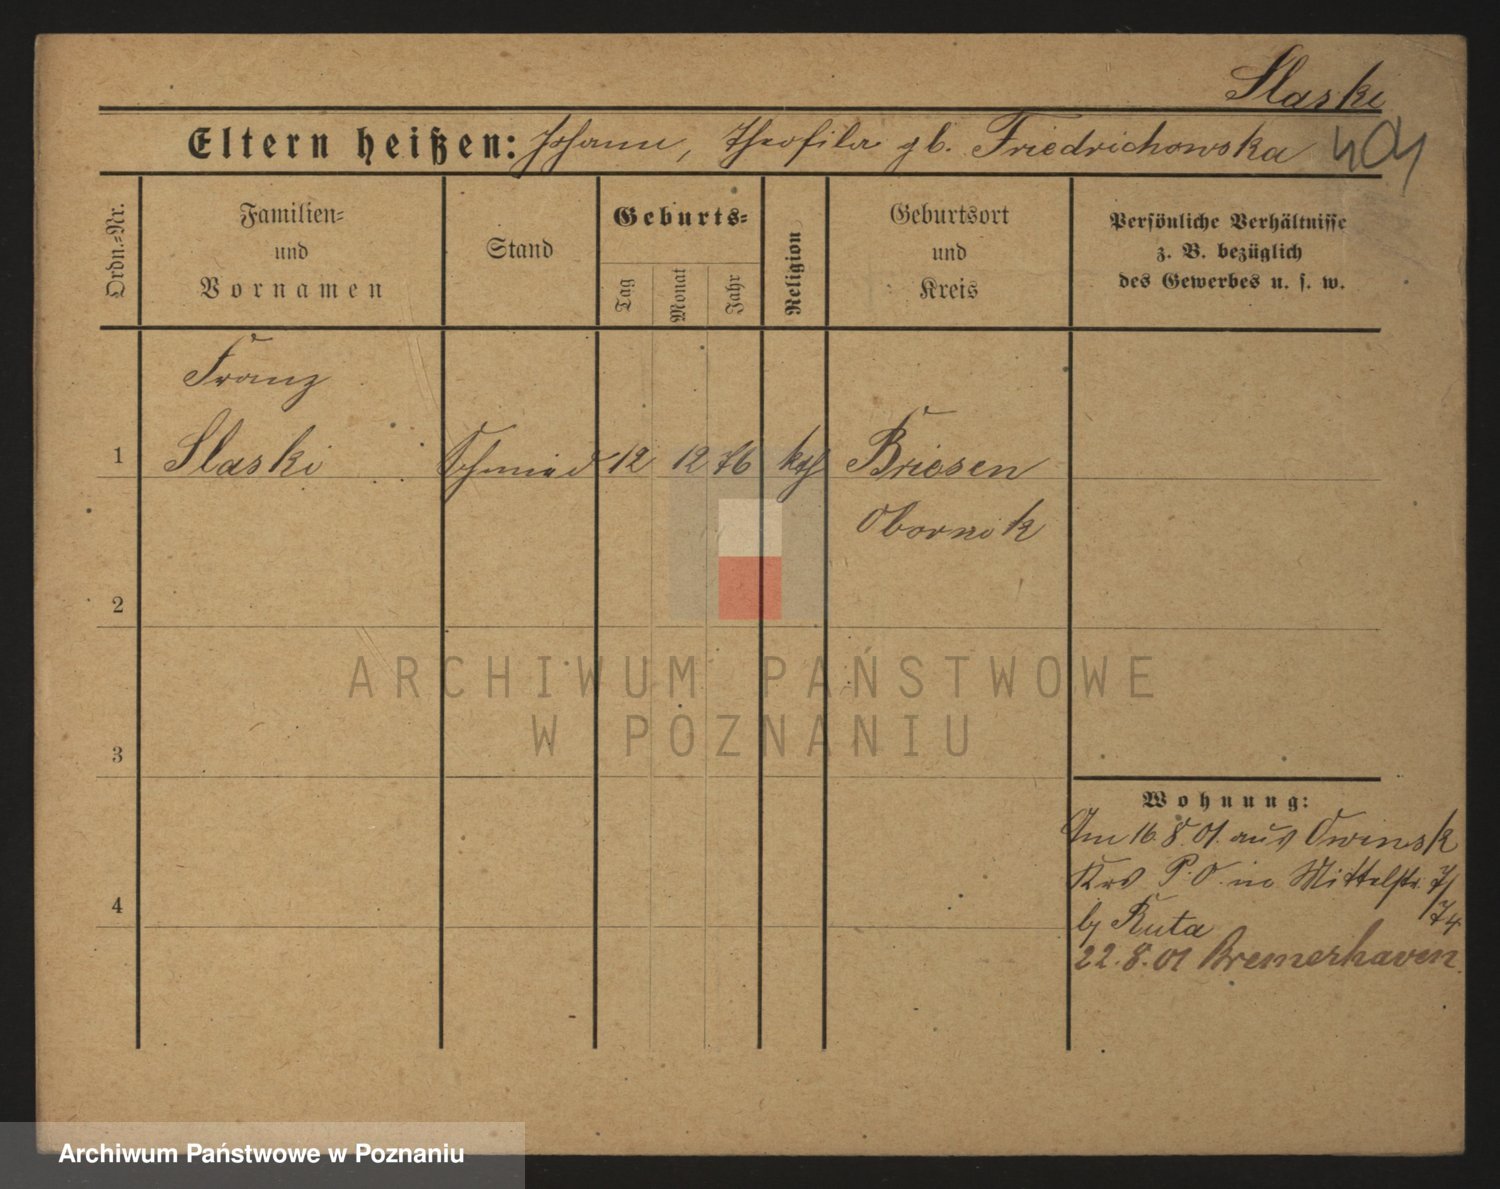 Slaski
Eltern heißen: Johann, Theofila gb. Friedrichowska
Ordn.=Nr.
Familien=
und
Vornamen
Stand
Geburts=
Tag
Monat
Jahr
Religion
Geburtsort
und
Kreis
Persönliche Verhältnisse
z. B. bezüglich
des Gewerbes u. s. w.
Franz
1 Slaski Schmied 12 12 76 kth Briesen
Obornik
2
3
4
ARCHIWUM PAŃSTWOWE
W POZNANIU
Wohnung:
Am 16.8.01. aus Owinsk
Krs P.O. in Mittelstr. 7/
74
by Kuta
22.8.01 Bremerhaven.
Archiwum Państwowe w Poznaniu